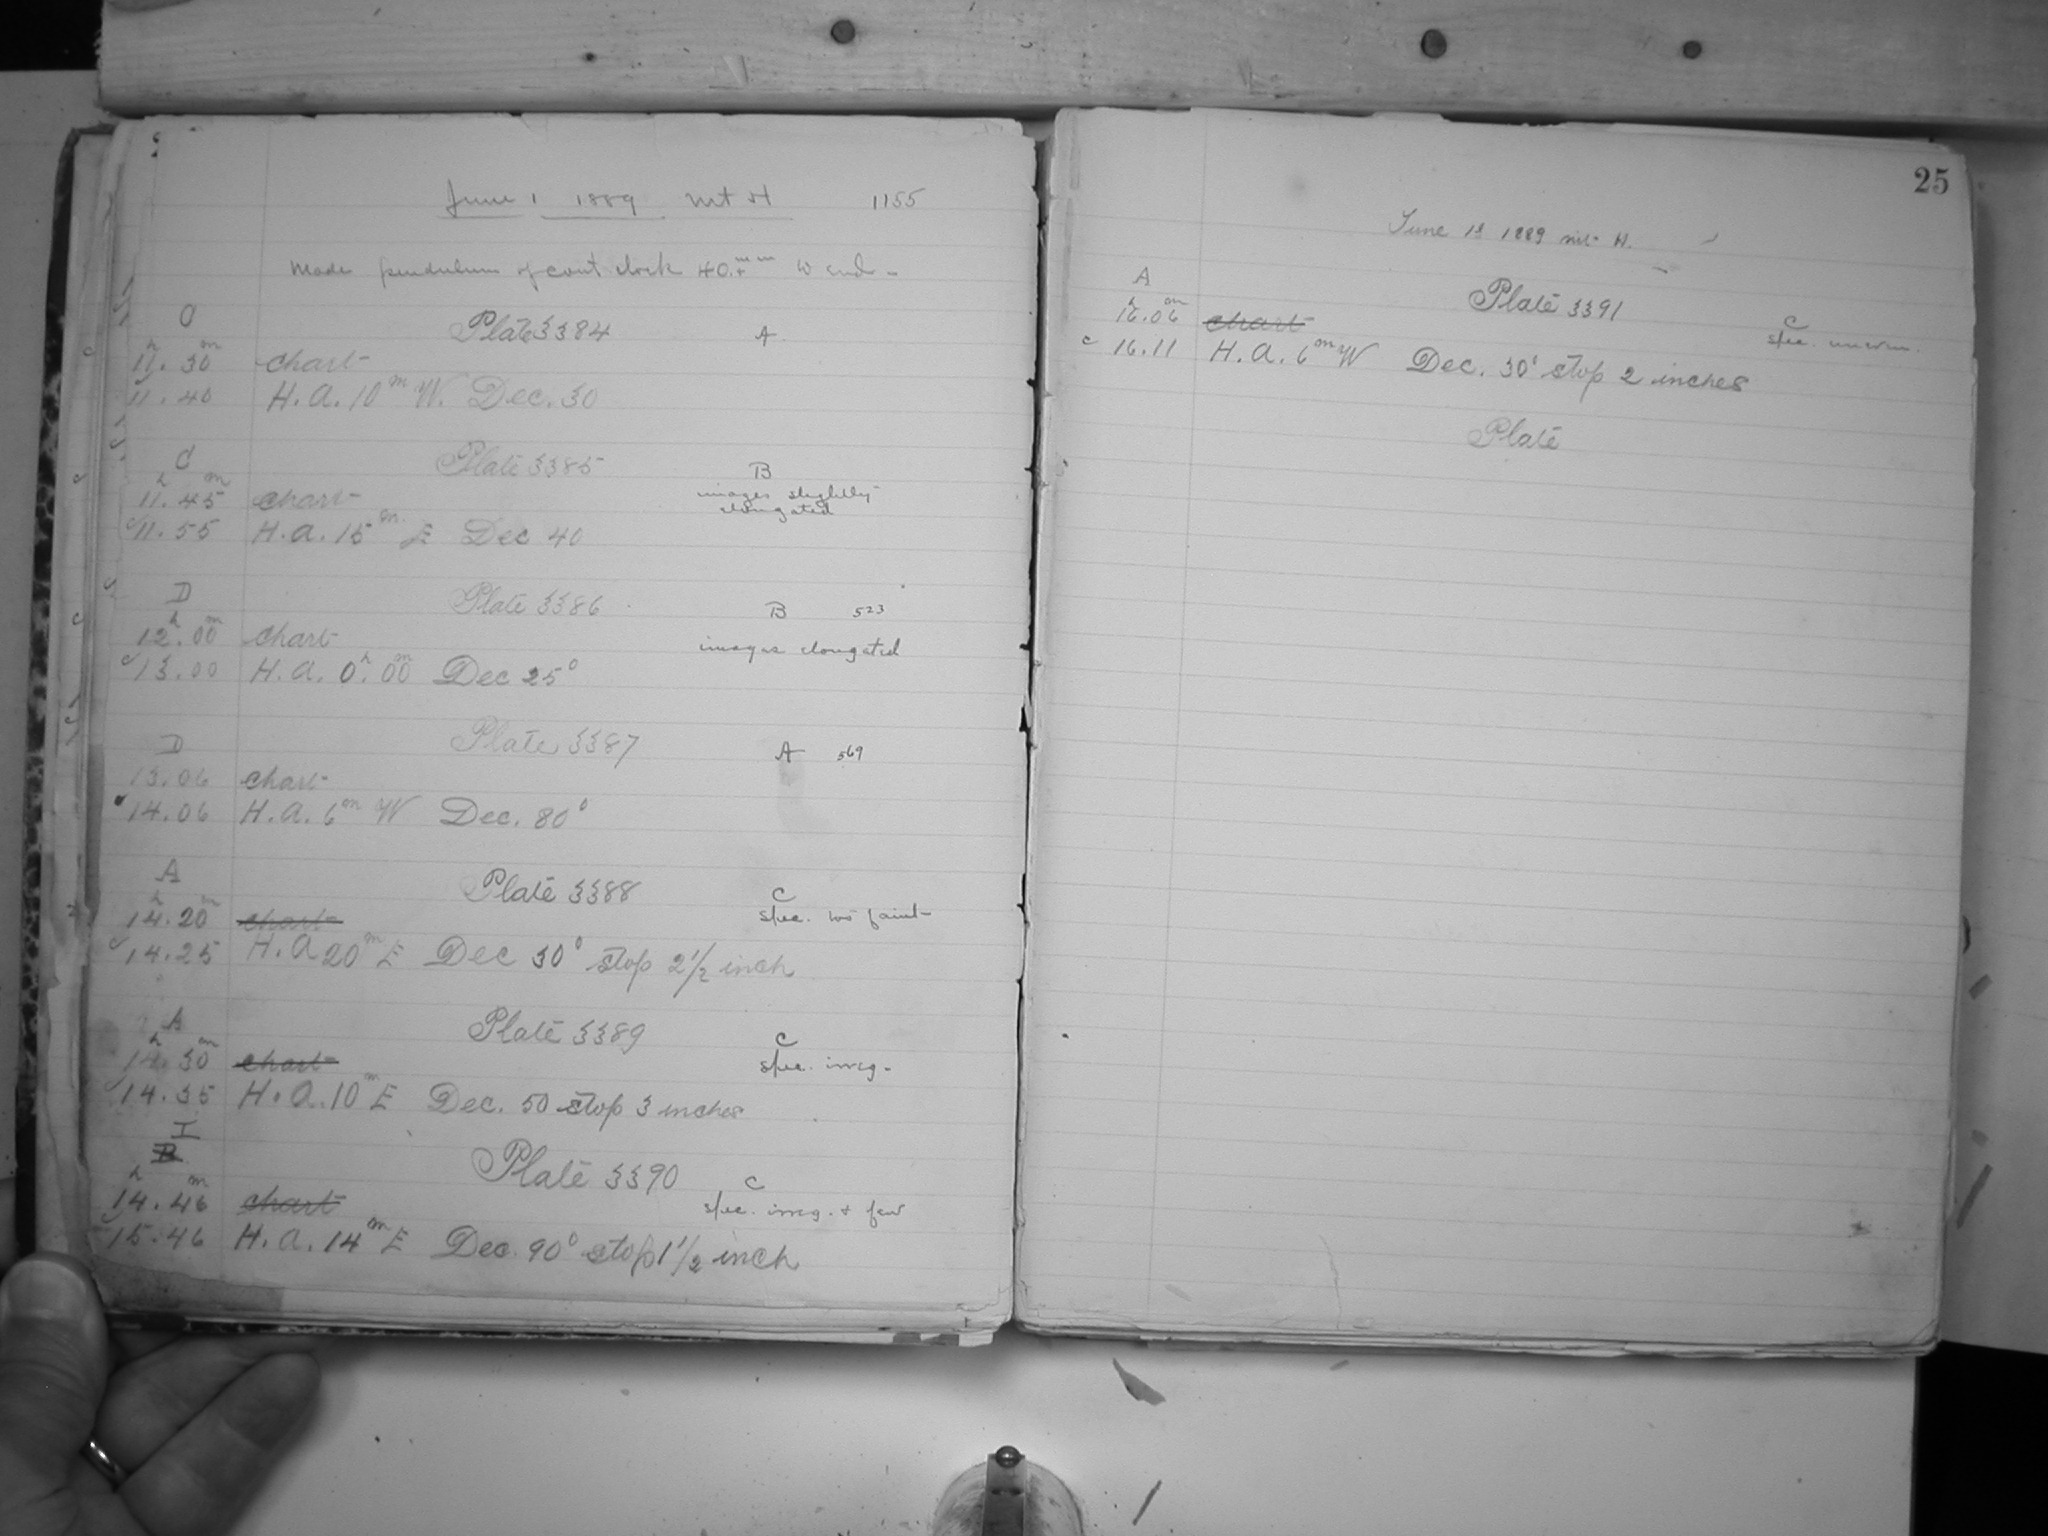 June 1 1889 Mt H 1155
Made pendulum of cont clock 40. mm W end -
C Plate 3384 A
h m
11.30 Chart
11.40 H.A. 10m W. Dec. 30
C Plate 3385 B
h m
11.45 Chart images slightly
elongated
11.55 H.A. 15m E Dec 40
D Plate 3386 B 523
h m
12.00 Chart images elongated
13.00 H.A. 0h.00m Dec 25°
D Plate 3387 A 569
13.06 Chart
14.06 H.A. 6m W Dec. 80°
A Plate 3388 C
h m
14.20 chart spec. too faint
14.25 H.A 20m E Dec 30° stop 2 1/2 inch
A Plate 3389 C
h m
14.30 chart spec. irreg.
14.35 H.A. 10m E Dec. 50 stop 3 inches
I
B Plate 3390 C
h m
14.46 chart spec. irreg. & few
15.46 H.A. 14m E Dec. 90° stop 1 1/2 inch
25
June 1st 1889 Mt H.
A Plate 3391 C
h m
16.06 chart spec.
c 16.11 H.A. 6m W Dec. 30° stop 2 inches
Plate